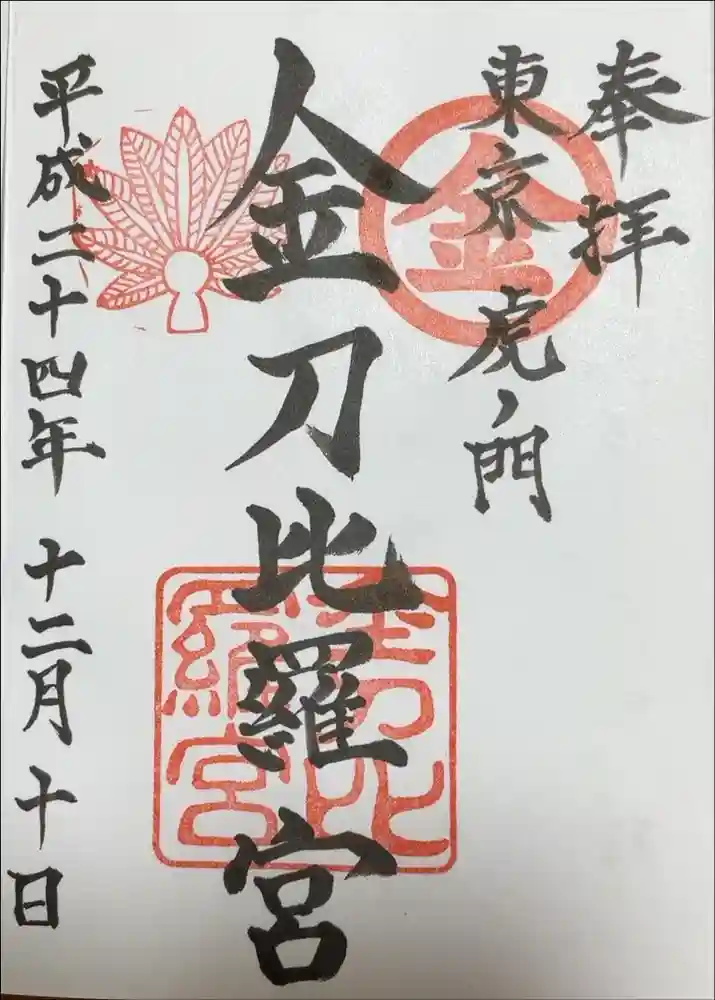 奉拝
東京 虎ノ門
金
金刀比羅宮
金刀比
羅宮
平成二十四年 十二月 十日